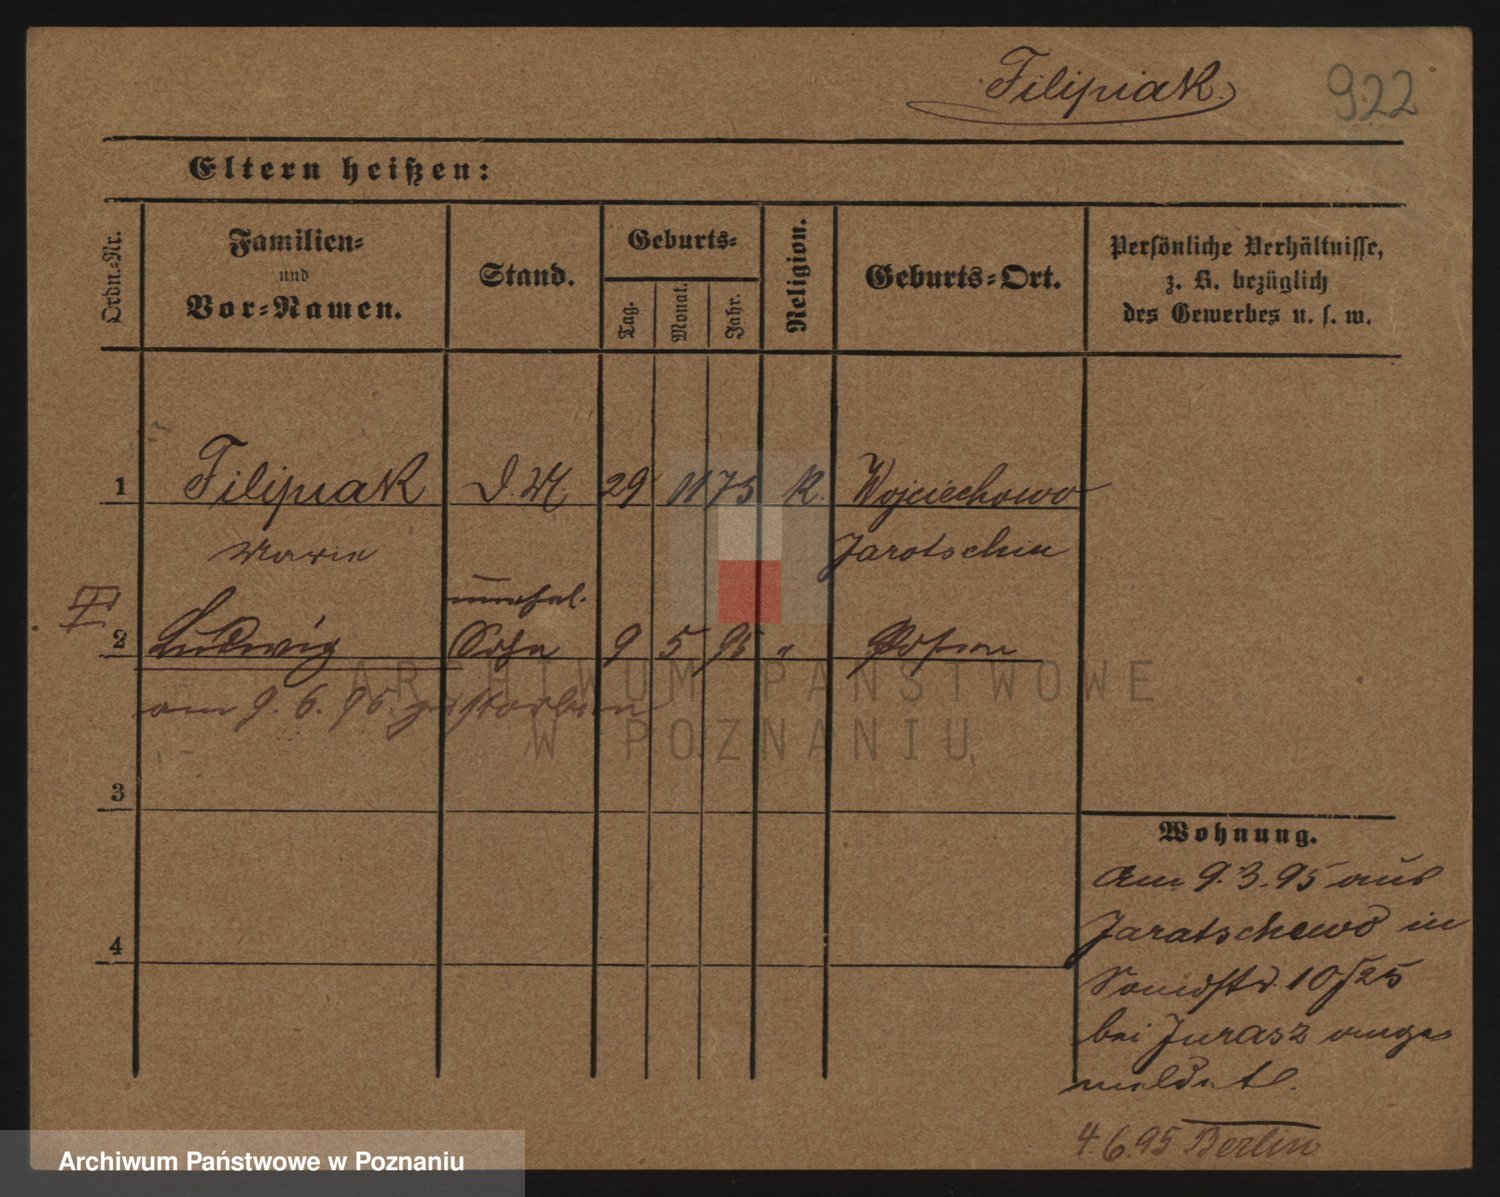 Filipiak
922
Eltern heißen:
Ordn.-Nr.
Familien-
und
Vor-Namen.
Stand.
Geburts-
Tag.
Monat.
Jahr.
Religion.
Geburts-Ort.
Persönliche Verhältnisse,
z. B. bezüglich
des Gewerbes u. s. w.
1 Filipiak D. M 29 11 73 K. Wojciechowo
Marie Jarotschin
unehel.
II
2 Ludwig Sohn 9 5 95 " Posen
am 9. 6. 95. gestorben
3
4
Wohnung.
Am 9. 3. 95 aus
Jaratschewo in
10/25
bei Jurasz ange
meldet.
4.6.95 Berlin
ARCHIWUM PAŃSTWOWE
W POZNANIU
Archiwum Państwowe w Poznaniu